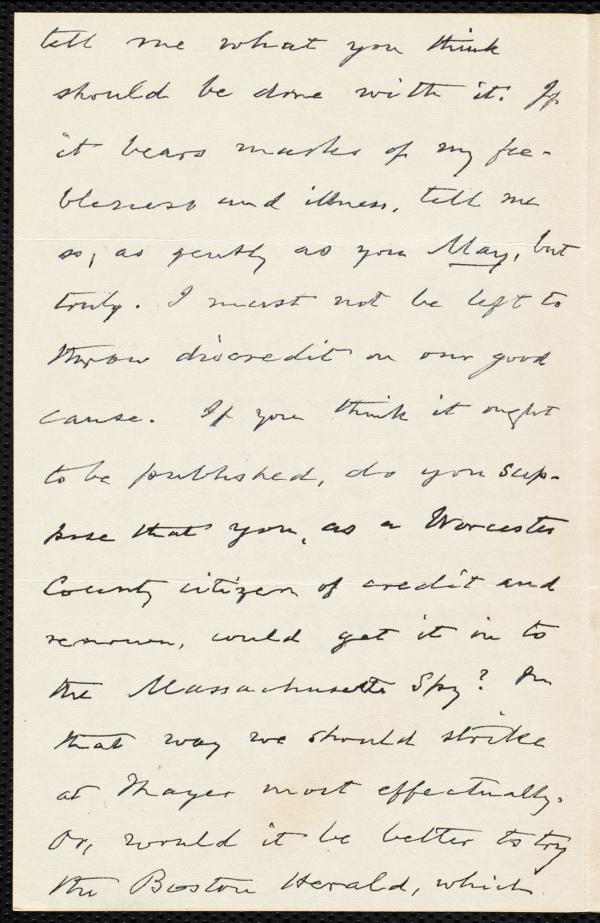 tell me what you think
should be done with it. If
it bears marks of my fee-
bleness and illness, tell me
so, as gently as you May, but
truly. I must not be left to
throw discredit on our good
cause. If you think it ought
to be published, do you sup-
pose that you, as a Worcester
County citizen of credit and
renown, could get it in to
the Massachusetts Spy? In
that way we should strike
at Thayer most effectually.
Or, would it be better to try
the Boston Herald, which